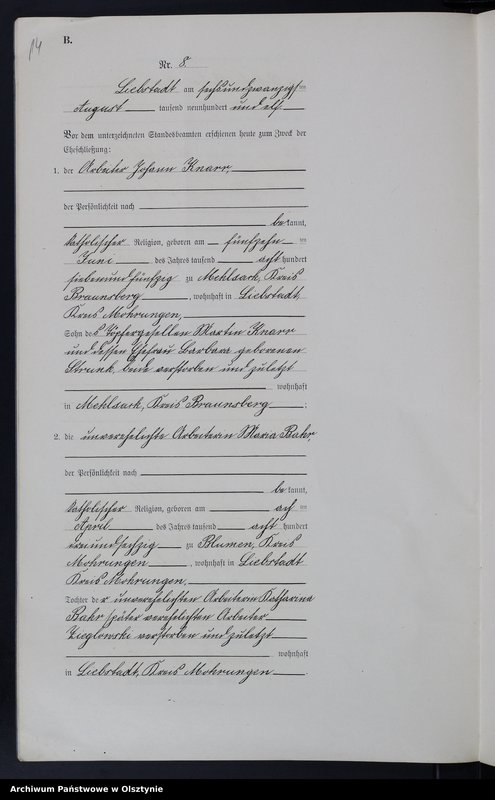 14
B.
Nr. 8.
Liebstadt am sechsundzwanzigsten
August tausend neunhundert und elf
Vor dem unterzeichneten Standesbeamten erschienen heute zum Zweck der
Eheschließung:
1. der Arbeiter Johann Knarr,
der Persönlichkeit nach
be kannt,
katholischer Religion, geboren am fünfzehn ten
Juni des Jahres tausend acht hundert
siebenundfünfzig zu Mehlsack, Kreis
Braunsberg, wohnhaft in Liebstadt,
Kreis Mohrungen,
Sohn des Töpfergesellen Martin Knarr
und dessen Ehefrau Barbara geborenen
Strunk, beide verstorben und zuletzt
wohnhaft
in Mehlsack, Kreis Braunsberg;
2. die unverehelichte Arbeiterin Maria Bahr,
der Persönlichkeit nach
be kannt,
katholischer Religion, geboren am ach ten
April des Jahres tausend acht hundert
undsechzig zu Blumen, Kreis
Mohrungen, wohnhaft in Liebstadt
Kreis Mohrungen,
Tochter der unverehelichten Arbeiterin Katharina
Bahr später verehelichten Arbeiter
verstorben und zuletzt
wohnhaft
in Liebstadt, Kreis Mohrungen.
Archiwum Państwowe w Olsztynie